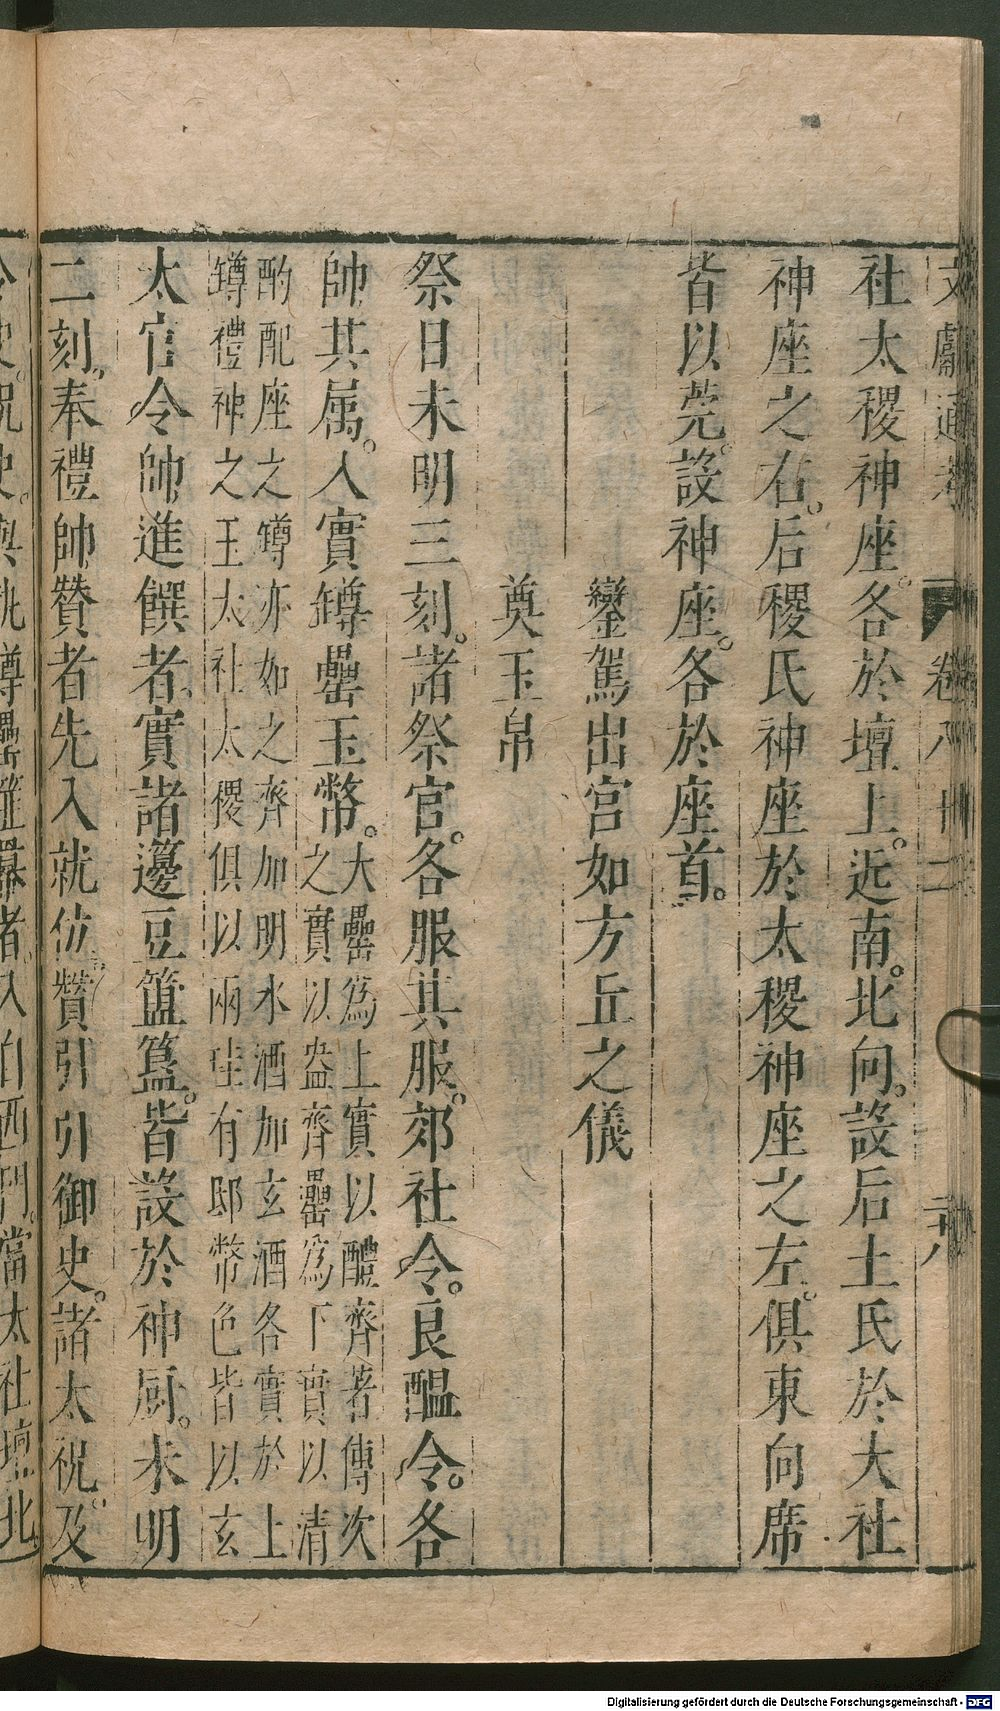 文獻通考 卷八十二 二八
社太稷神座。各於壇上。近南。北向。設后土氏於大社
神座之右。后稷氏神座於太稷神座之左。俱東向席
皆以莞。設神座。各於座首。
鑾駕出宮如方丘之儀
奠玉帛
祭日未明三刻。諸祭官。各服其服。郊社令。良醞令。各
帥其属。入實罇罍玉幣。大罍為上實以醴齊著傳次
之實以盎齊罍為下實以清
酌配座之罇亦如之齊加明水酒加玄酒各實於上
罇禮神之玉太社太稷俱以兩珪有邸幣色皆以玄
太官令帥進饌者。實諸籩豆簠簋。皆設於神厨。未明
二刻。奉禮帥贊者先入就位。贊引引御史。諸太祝。及
令史。祝史。與執罇罍篚羃者。入自西門。當太社壇北
Digitalisierung gefördert durch die Deutsche Forschungsgemeinschaft - DFG